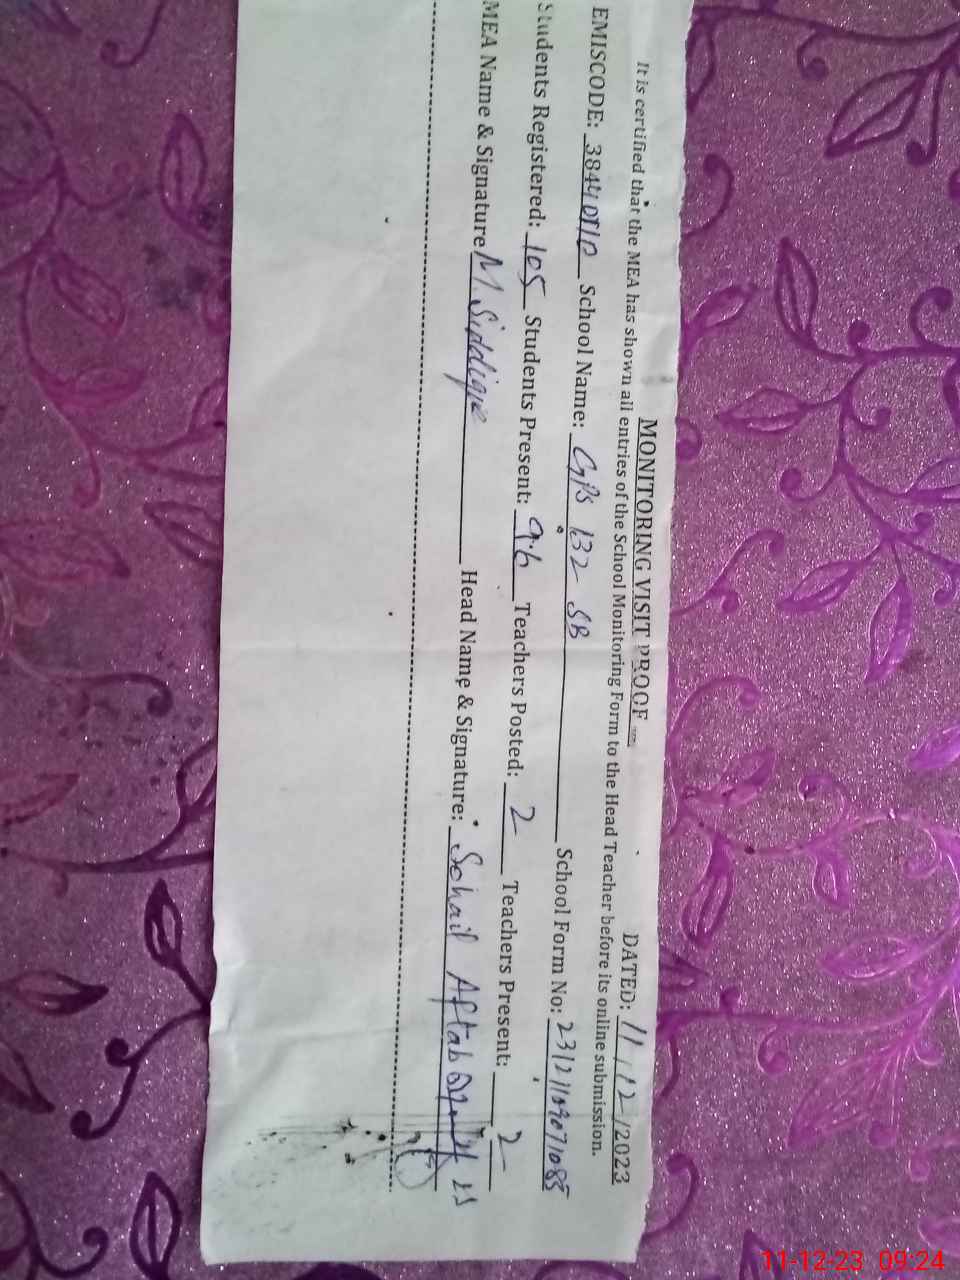 MONITORING VISIT PROOF
DATED: 11/12/2023
It is certified that the MEA has shown all entries of the School Monitoring Form to the Head Teacher before its online submission.
EMISCODE: 38440110 School Name: GPS 132 SB School Form No: 23121109071085
Students Registered: 105 Students Present: 96 Teachers Posted: 2 Teachers Present: 2
MEA Name & Signature M. Siddique Head Name & Signature: Sohail Aftab
11-12-23 09:24